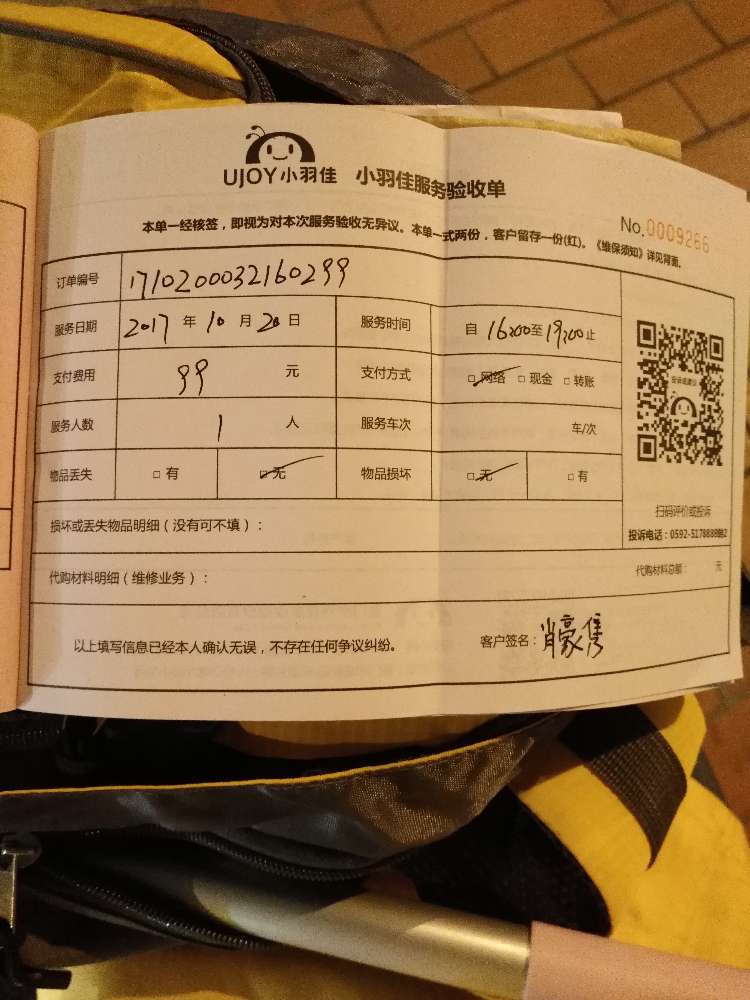 UJOY小羽佳 小羽佳服务验收单
No.0009266
本单一经核签，即视为对本次服务验收无异议。本单一式两份，客户留存一份(红)。《维保须知》详见背面。
订单编号 17102000032160299
服务日期 2017 年 10 月 20 日 服务时间 自 16:00 至 19:00 止
支付费用 99 元 支付方式 □网络 □现金 □转账
服务人数 1 人 服务车次 车/次
物品丢失 □有 □无 物品损坏 □无 □有
扫码评价或投诉
损坏或丢失物品明细（没有可不填）：
代购材料明细（维修业务）： 代购材料总额： 元
以上填写信息已经本人确认无误，不存在任何争议纠纷。 客户签名：肖豪隽